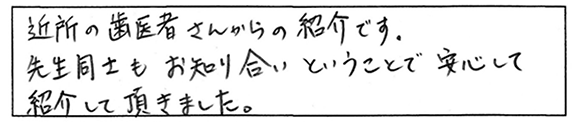 近所の歯医者さんからの紹介です。
先生同士もお知り合いということで安心して
紹介して頂きました。